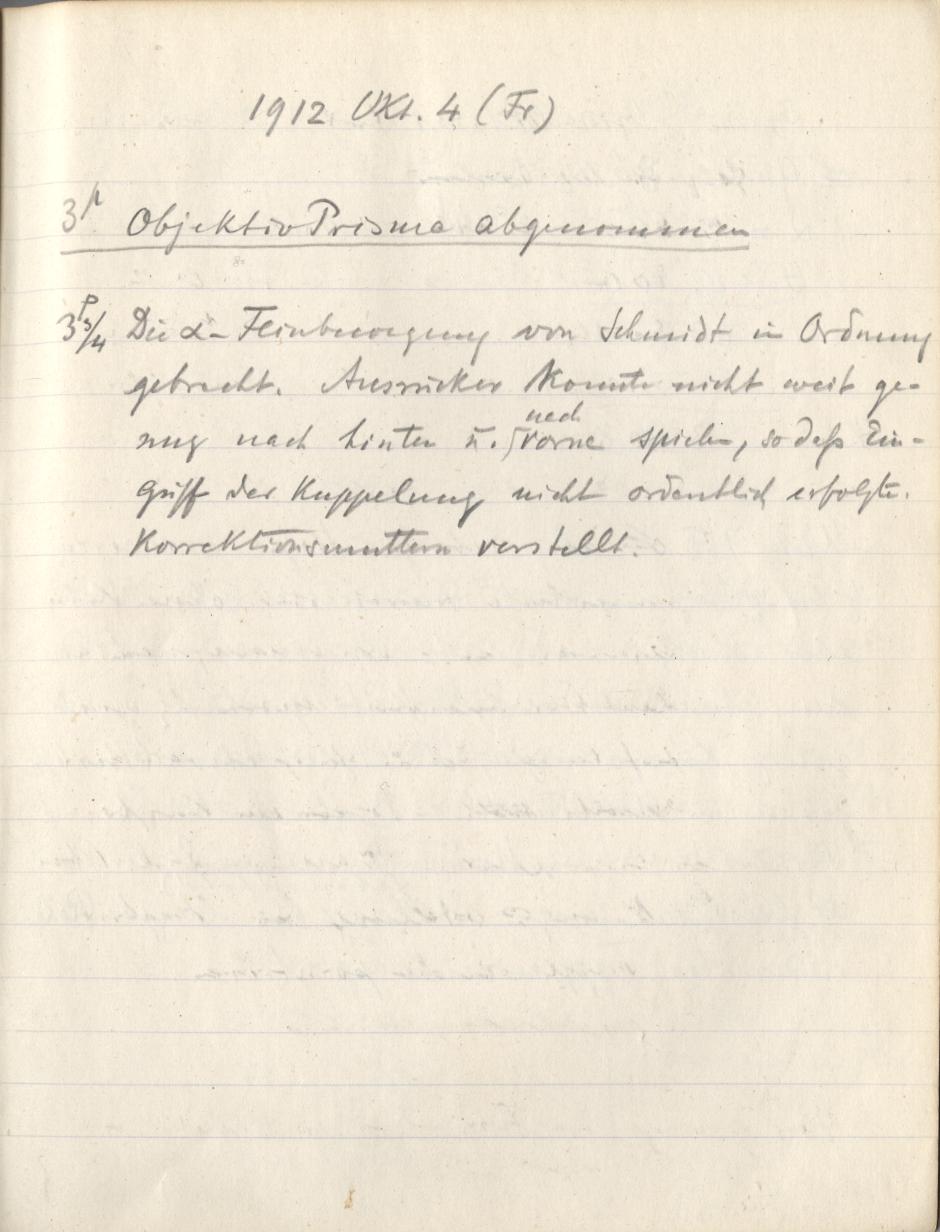 1912 Okt. 4 (Fr)
3p. Objektiv Prisma abgenommen
3p 3/4 Die α-Feinbewegung von Schmidt in Ordnung
gebracht. Ausrücker konnte nicht weit ge-
nug nach hinten u. nach vorne spielen, so daß Ein-
griff der Kuppelung nicht ordentlich erfolgte.
Korrektionsmuttern verstellt.